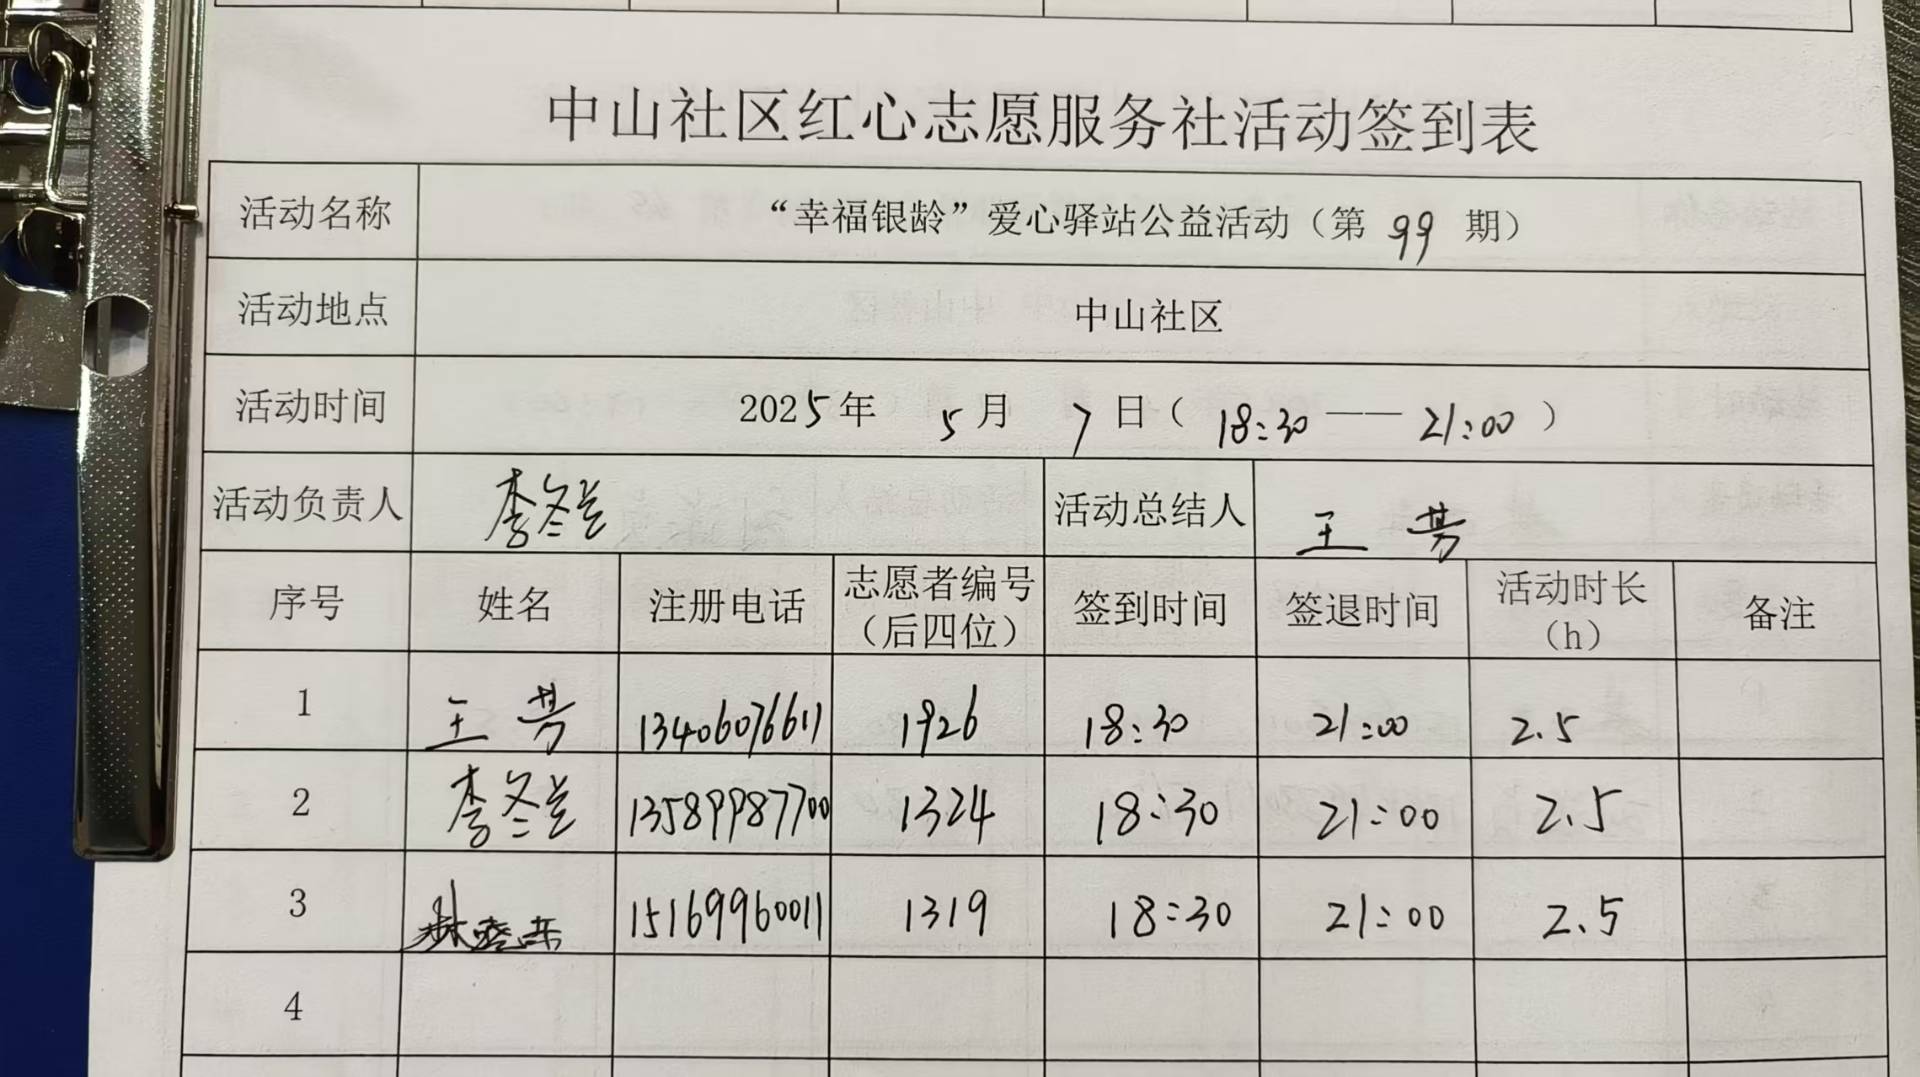 中山社区红心志愿服务社活动签到表
活动名称 “幸福银龄”爱心驿站公益活动（第 99 期）
活动地点 中山社区
活动时间 2025年 5月 7日（18:30——21:00）
活动负责人 李冬兰 活动总结人 王芳
序号 姓名 注册电话 志愿者编号（后四位） 签到时间 签退时间 活动时长（h） 备注
1 王芳 13406076611 1926 18:30 21:00 2.5
2 李冬兰 13589987700 1324 18:30 21:00 2.5
3 15169960011 1319 18:30 21:00 2.5
4